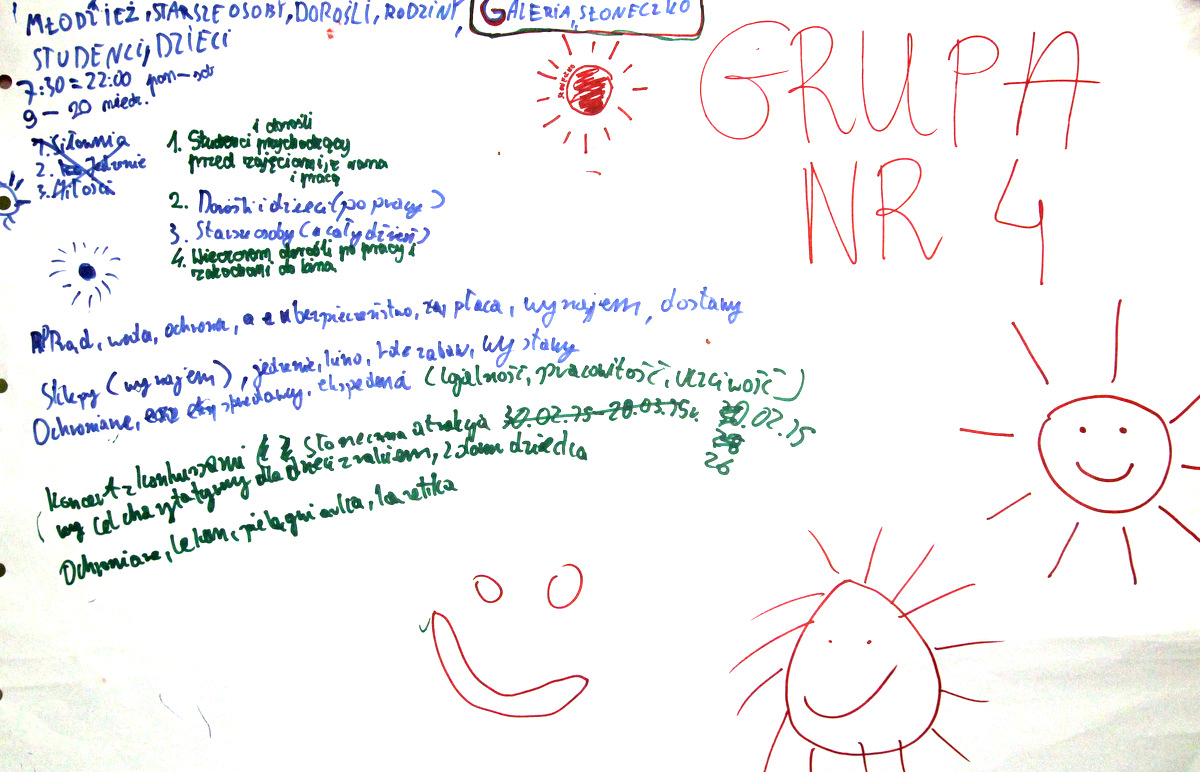 MŁODZIEŻ, STARSZE OSOBY, DOROŚLI, RODZINY, GALERIA SŁONECZKO
STUDENCI, DZIECI
7:30 = 22:00 pon-sob
9 - 20 niedz.
GRUPA
NR 4
1. Siłownia
2. Jedzenie
3. Miłości
i dorośli
1. Studenci przychodzący
przed zajęciami, z rana
i pracą
2. Dorośli i dzieci (po pracy)
3. Starsze osoby (cały dzień)
4. Wieczorem dorośli po pracy i
zakochani do kina
Prąd, woda, ochrona, ubezpieczeństwo, płaca, wynajem, dostawy
Sklepy (wynajem), jedzenie, kino, zabaw, wystawy
Ochroniarze, sprzedawcy, ekspedenci (lojalność, pracowitość, uczciwość)
Koncert z konkursami Słoneczna atrakcja 30.02.15-28.03.15r. 20.02.15
28
26
(cel charytatywny dla dzieci z rakiem, z domu dziecka
Ochroniarze, lekarz, pielęgniarka, karetka